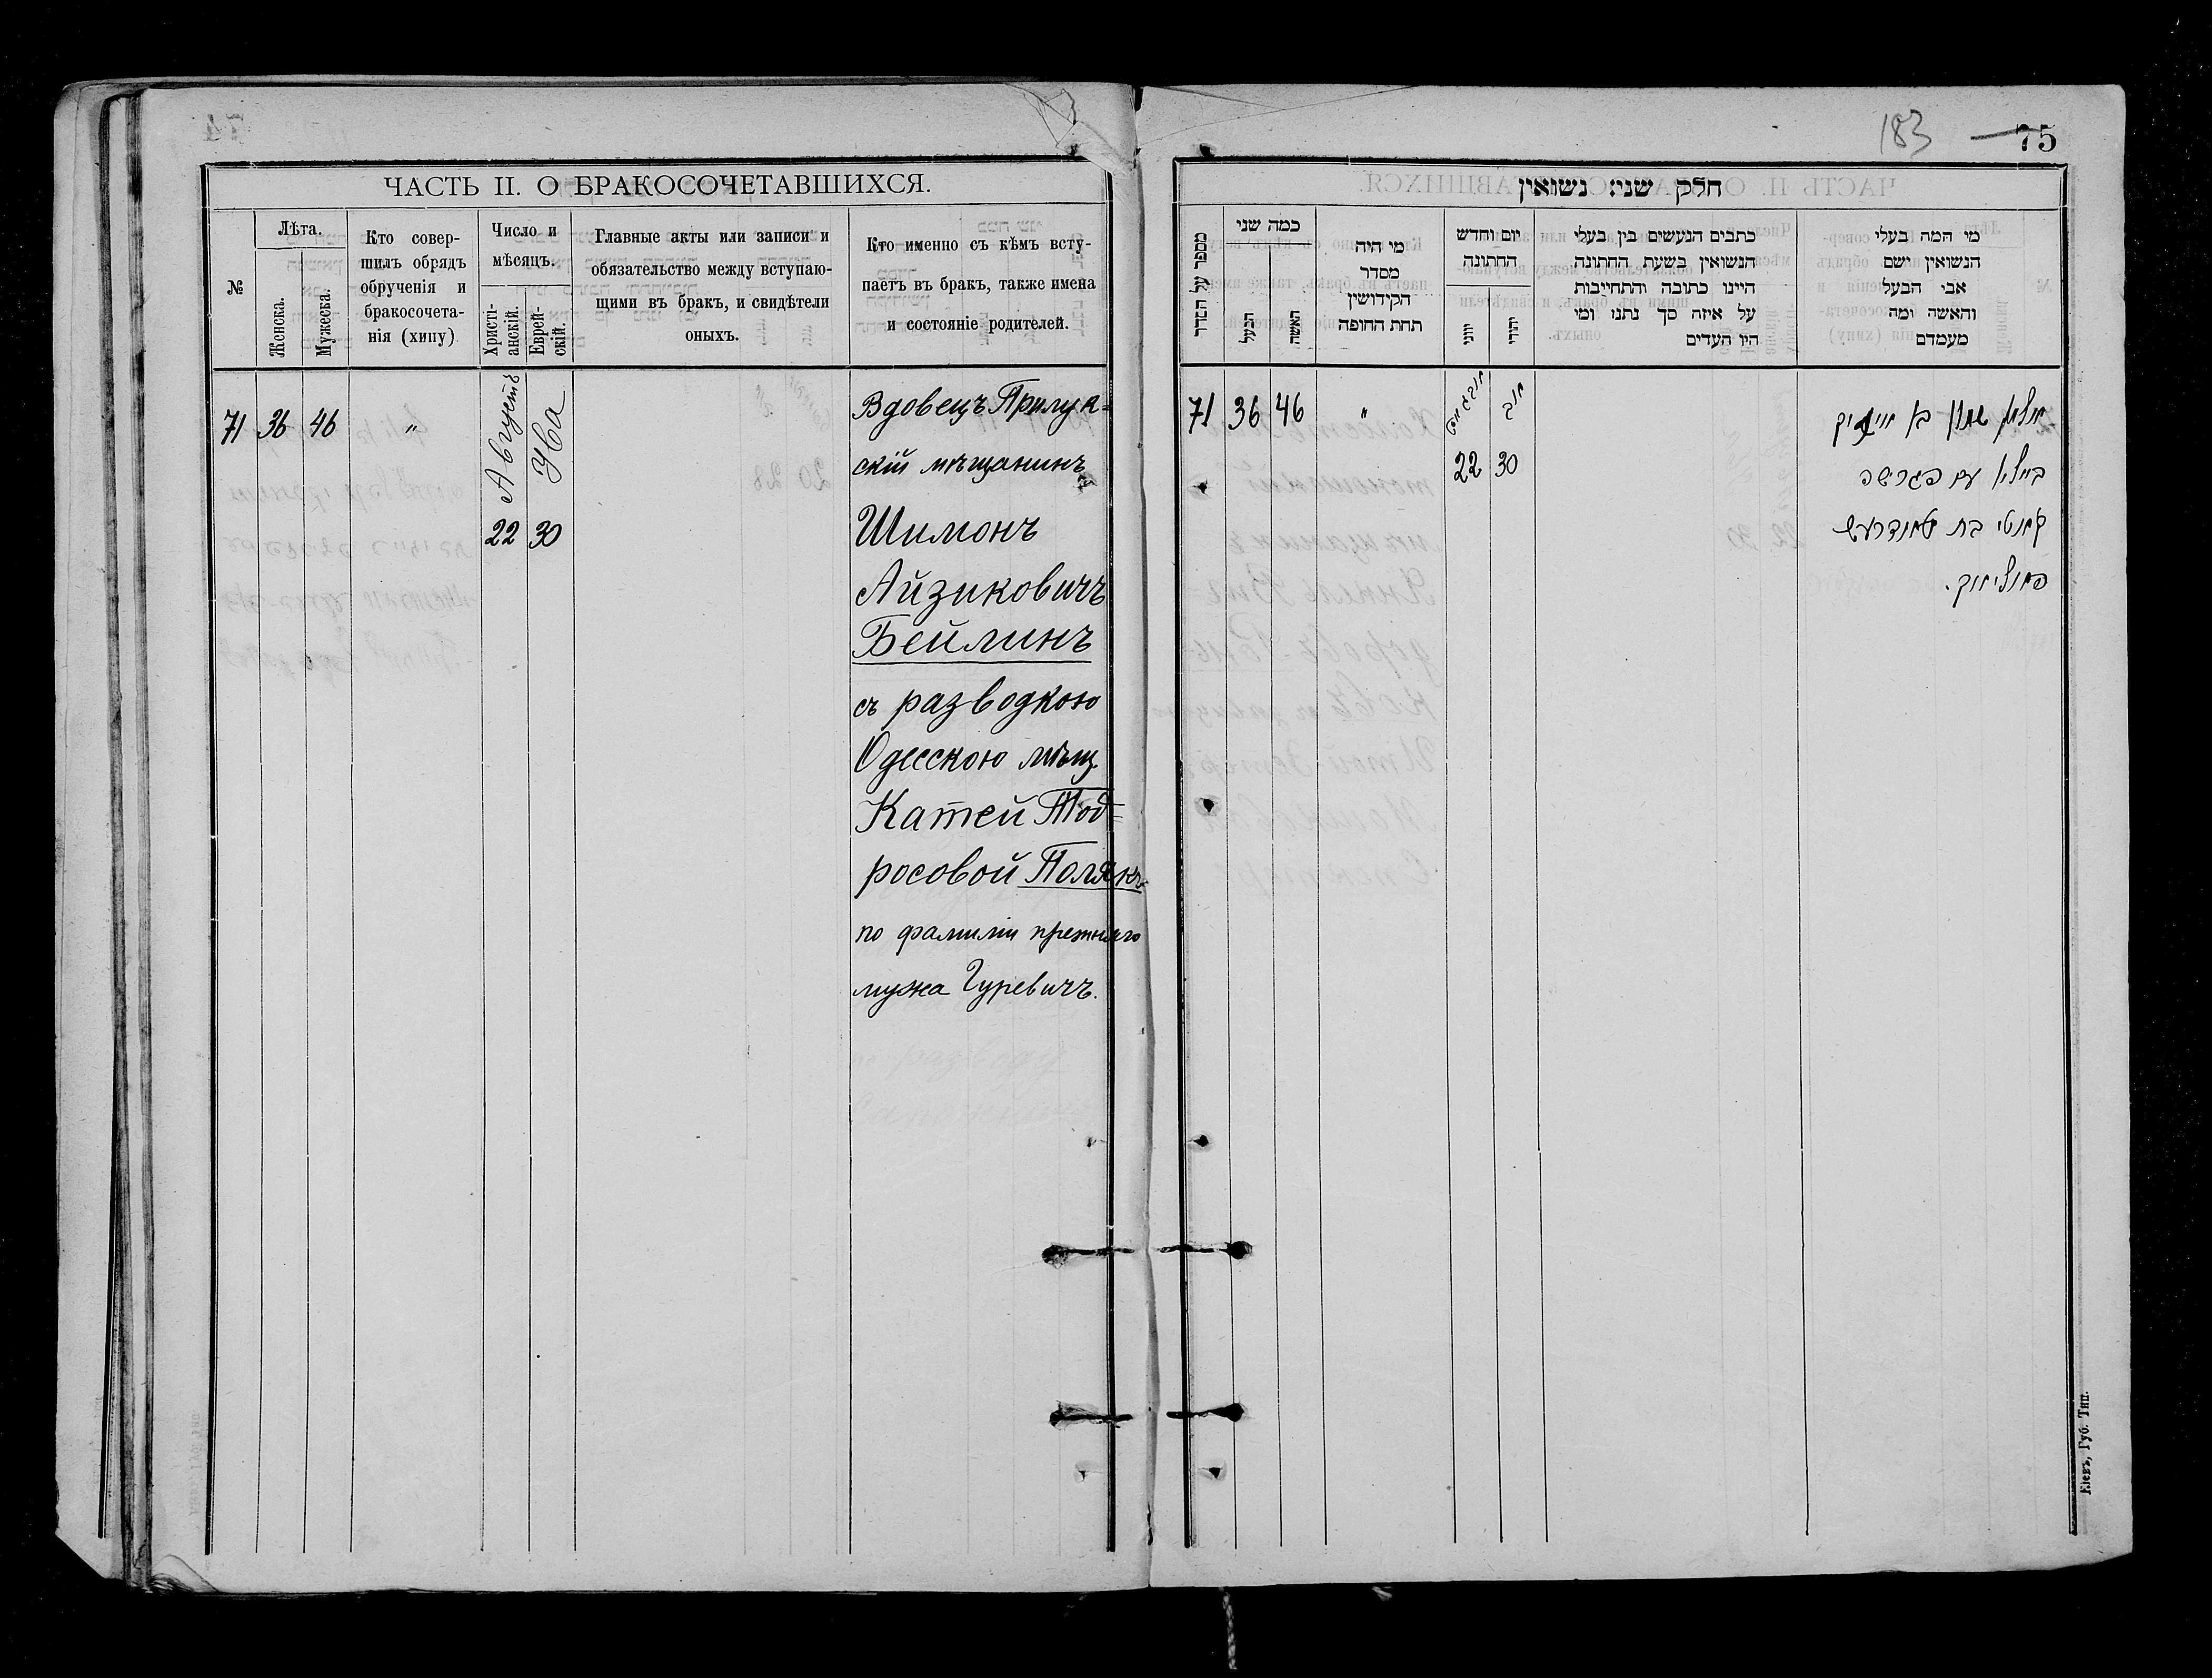 ЧАСТЬ II. О БРАКОСОЧЕТАВШИХСЯ.
№
Лѣта.
Женска.
Мужеска.
Кто совер-
шилъ обрядъ
обрученія и
бракосочета-
нія (хипу)
Число и
мѣсяцъ.
Христі-
анскій.
Еврей-
скій.
Главные акты или записи и
обязательство между вступаю-
щими въ бракъ, и свидѣтели
оныхъ.
Кто именно съ кѣмъ всту-
паетъ въ бракъ, также имена
и состояніе родителей.
71 36 46 "
Августъ
22 30
Вдовецъ Прилук-
скій мѣщанинъ
Шимонъ
Айзиковичъ
Бейлинъ
съ разводкою
Одесскою мѣщ.
Катей Тод=
росовой Полякъ
по фамиліи прежняго
мужа Гуревичъ.
183 75
חלק שני: נשואין
מספר על הסדר
כמה שני
הבעל
האשה
מי היה
מסדר
הקידושין
תחת החופה
יום וחדש
החתונה
יוני
יהודי
כתבים הנעשים בין בעלי
הנשואין בשעת החתונה
היינו כתובה והתחייבות
על איזה סך נתנו ומי
היו העדים
מי המה בעלי
הנשואין ושם
אבי הבעל
והאשה ומה
מעמדם
71 36 46 "
22 30
שמעון בן אייזיק
ביילין עם הגרושה
בת טאדרעס
פאליאק.
Кіевъ, Губ. Тип.